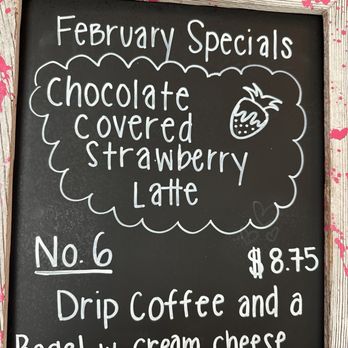 February Specials
Chocolate
covered
strawberry
Latte
No. 6 $8.75
Drip Coffee and a
Bagel w cream cheese